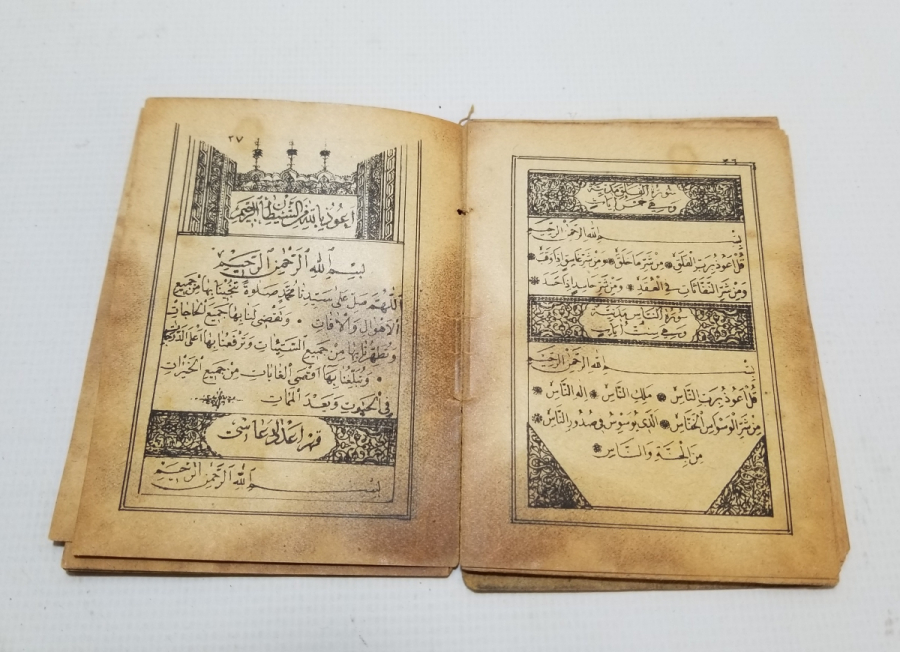 ٣٦
سورة الفلق مدنية
وهي خمس آيات
بسم الله الرحمن الرحيم
قل اعوذ برب الفلق من شر ما خلق ومن شر غاسق اذا وقب
ومن شر النفاثات في العقد ومن شر حاسد اذا حسد
سورة الناس مدنية
وهي ست آيات
بسم الله الرحمن الرحيم
قل اعوذ برب الناس ملك الناس اله الناس
من شر الوسواس الخناس الذى يوسوس فى صدور الناس
من الجنة والناس
٣٧
اعوذ بالله من الشيطان الرجيم
بسم الله الرحمن الرحيم
اللهم صل على سيدنا محمد صلوة تنجينا بها من جميع
الاهوال والافات وتقضى لنا بها جميع الحاجات
وتطهرنا بها من جميع السيئات وترفعنا بها اعلى الدرجات
وتبلغنا بها اقصى الغايات من جميع الخيرات
فى الحيوة وبعد الممات
قهر اعدا دعاسى
بسم الله الرحمن الرحيم